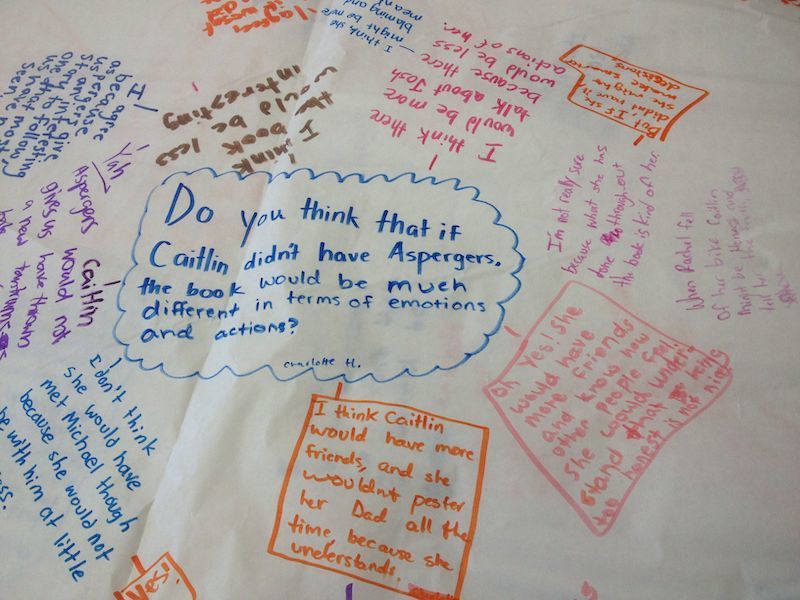 Do you think that if
Caitlin didn't have Aspergers,
the book would be much
different in terms of emotions
and actions?
Charlotte H.
I think Caitlin
would have more
friends, and she
wouldn't pester
her Dad all the
time, because she
understands.
Oh Yes! She
would have
more friends
and know how
other people feel
She would under
stand that being
too honest is not nice
I'm not really sure
because what she has
done throughout
the book is kind of her.
When Rachel fell
of her bike Caitlin
might be Honest and
tell her
But If she
didn't have it
she might
make smarter
decisions.
I think there
would be more
talk about Josh
because there
would be less
actions of her.
— I think she
might be more
blaming and
mean
I
think
the book
would be less
interesting
I agree
because
aspergers
it an interesting
story to follow
one that most
us have
seen
Yah
Caitlin
Aspergers would not
gives us have thrown
a new tantrums
I don't think
she would have
met Michael though
because she would not
be with him at little
Yes!